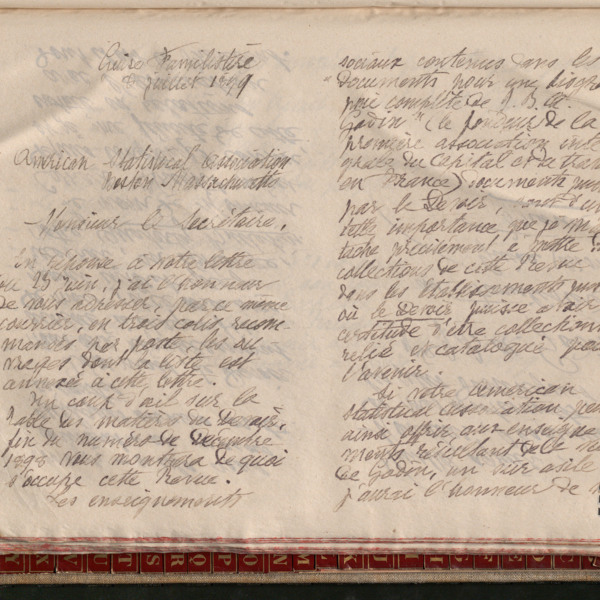 Guise Familistère
8 juillet 1899
American Statistical Association
Boston Massachusetts
Monsieur le Secrétaire,
En réponse à votre lettre
du 23 juin, j'ai l'honneur
de vous adresser, par ce même
courrier, en trois colis recom
mandés par poste, les ou
vrages dont la liste est
annexée à cette lettre.
Un coup d'œil sur la
table des matières du Devoir,
fin du numéro de Décembre
1898 vous montrera de quoi
s'occupe cette revue.
Les enseignements
sociaux contenus dans les
"Documents pour une biogra
phie complète de J. B. A.
Godin" (le fondeur de la
première association inté
grale du Capital et du travail
en France) Documents publiés
par le Devoir, sont d'une
telle importance que je m'at
tache précisément à mettre des
collections de cette Revue
dans les établissements
où le Devoir puisse avoir
certitude d'être collectionné
relié et catalogué pour
l'avenir.
Si votre American
statistical association peut
ainsi offrir aux enseigne
ments résultant de la vie
de Godin, un sûr asile
j'aurai l'honneur de